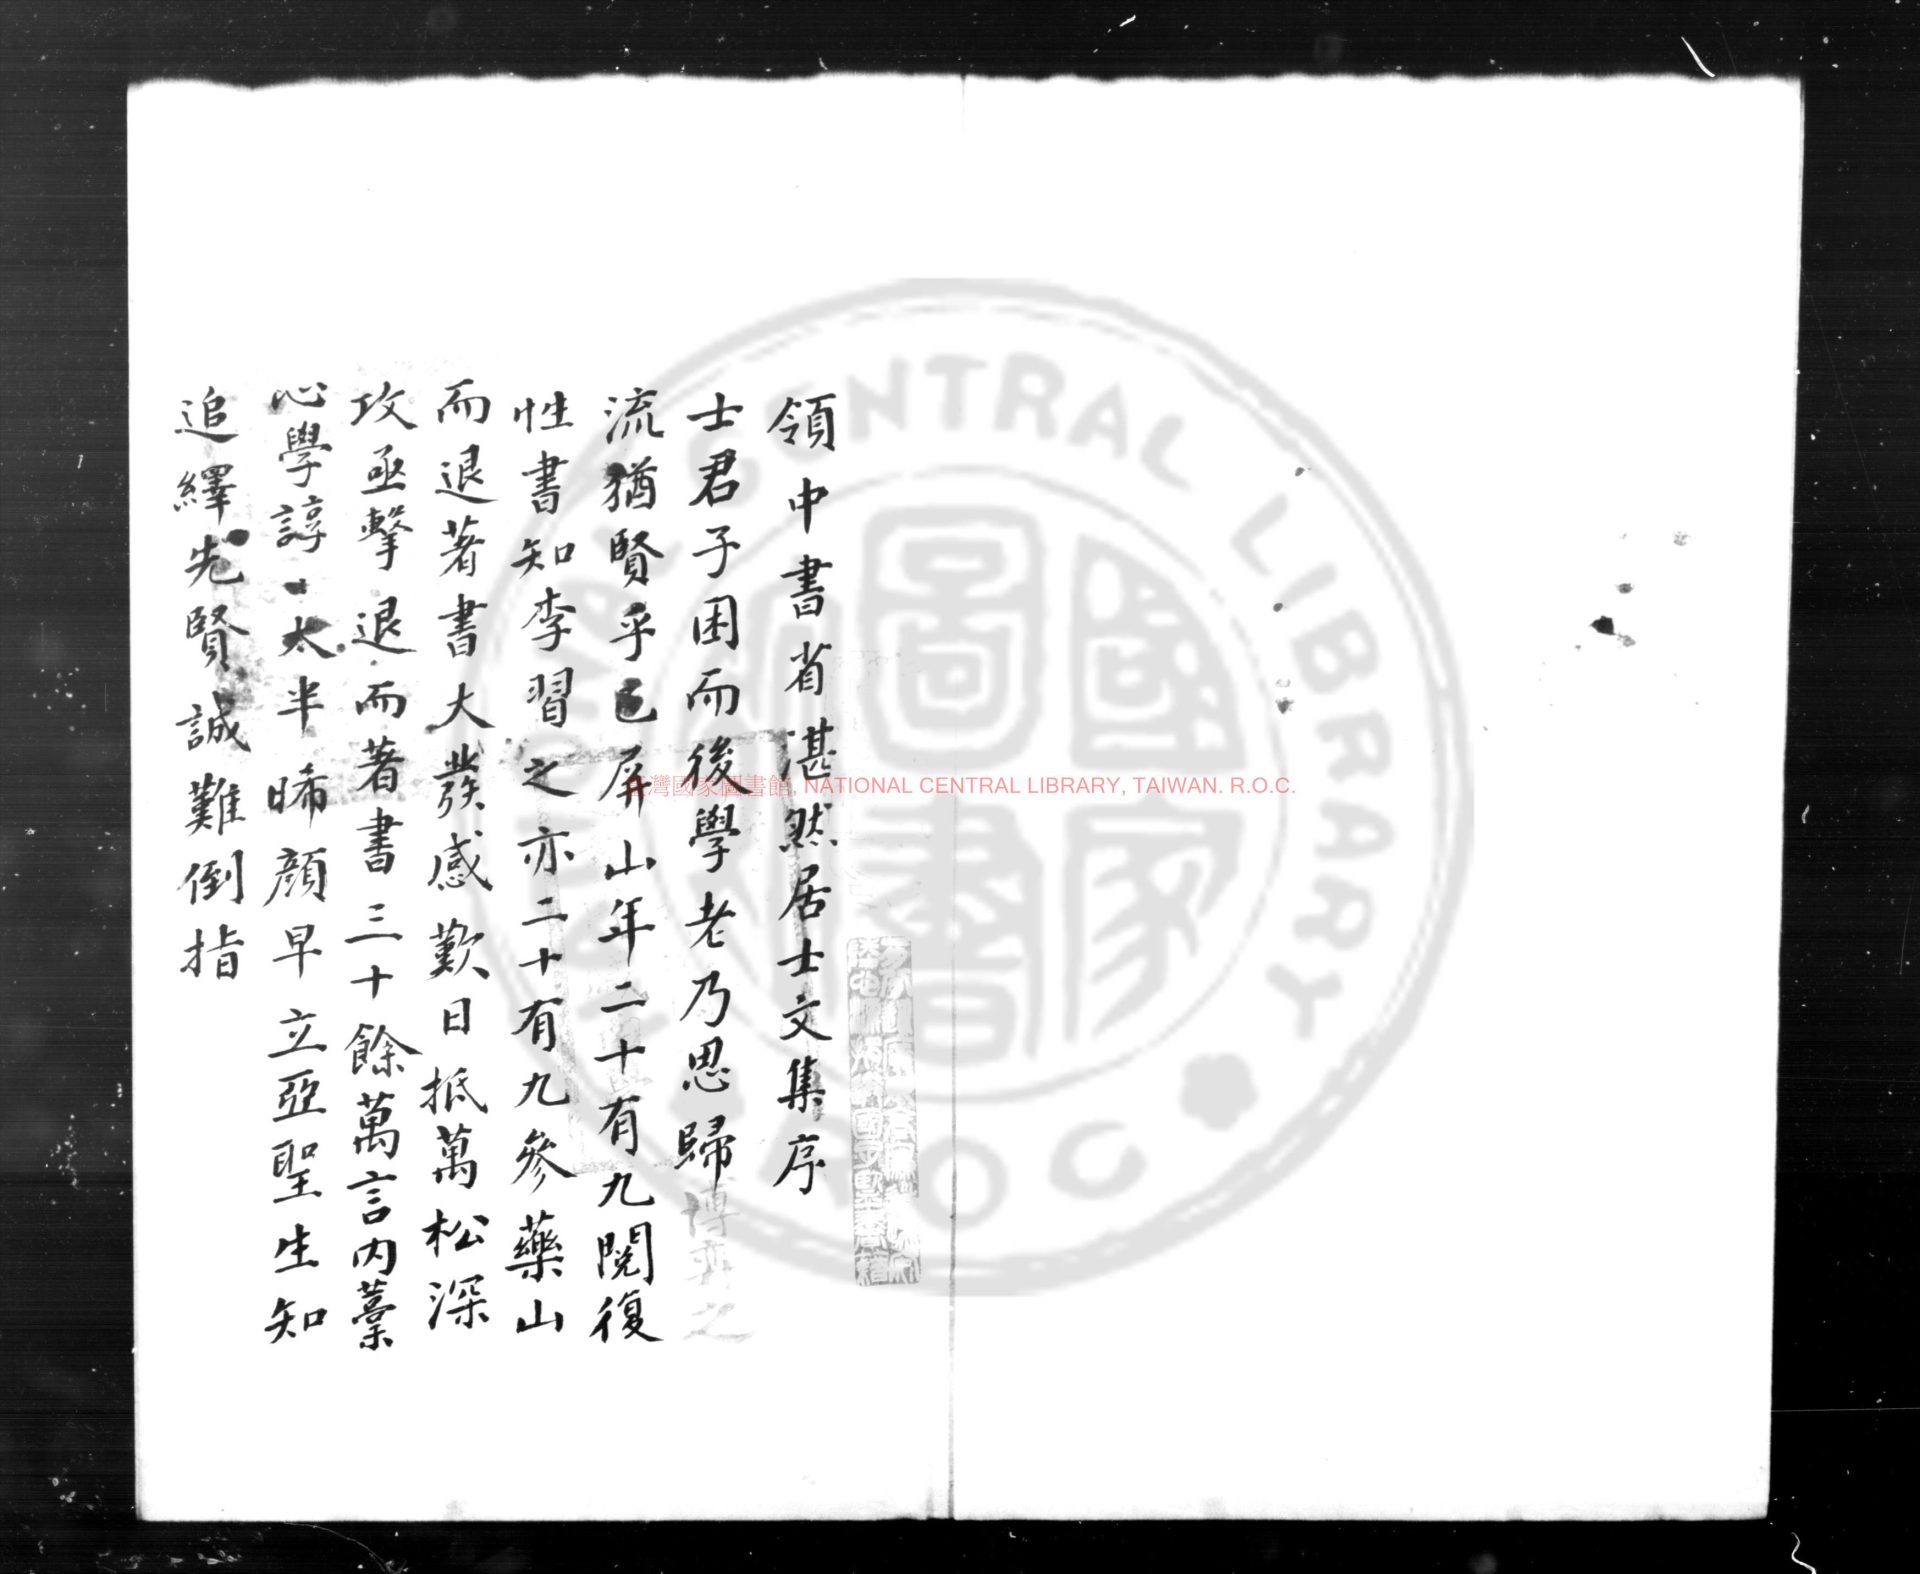 領中書省湛然居士文集序
士君子困而後學老乃思歸博弈之
流猶賢乎已屏山年二十有九閱復
性書知李習之亦二十有九參藥山
而退著書大發感歎日抵萬松深
攻亟擊退而著書三十餘萬言內藁
心學諄〻太半晞顏早立亞聖生知
追繹先賢誠難倒指
臺灣國家圖書館, NATIONAL CENTRAL LIBRARY, TAIWAN. R.O.C.
NATIONAL CENTRAL LIBRARY R.O.C.
國家圖書